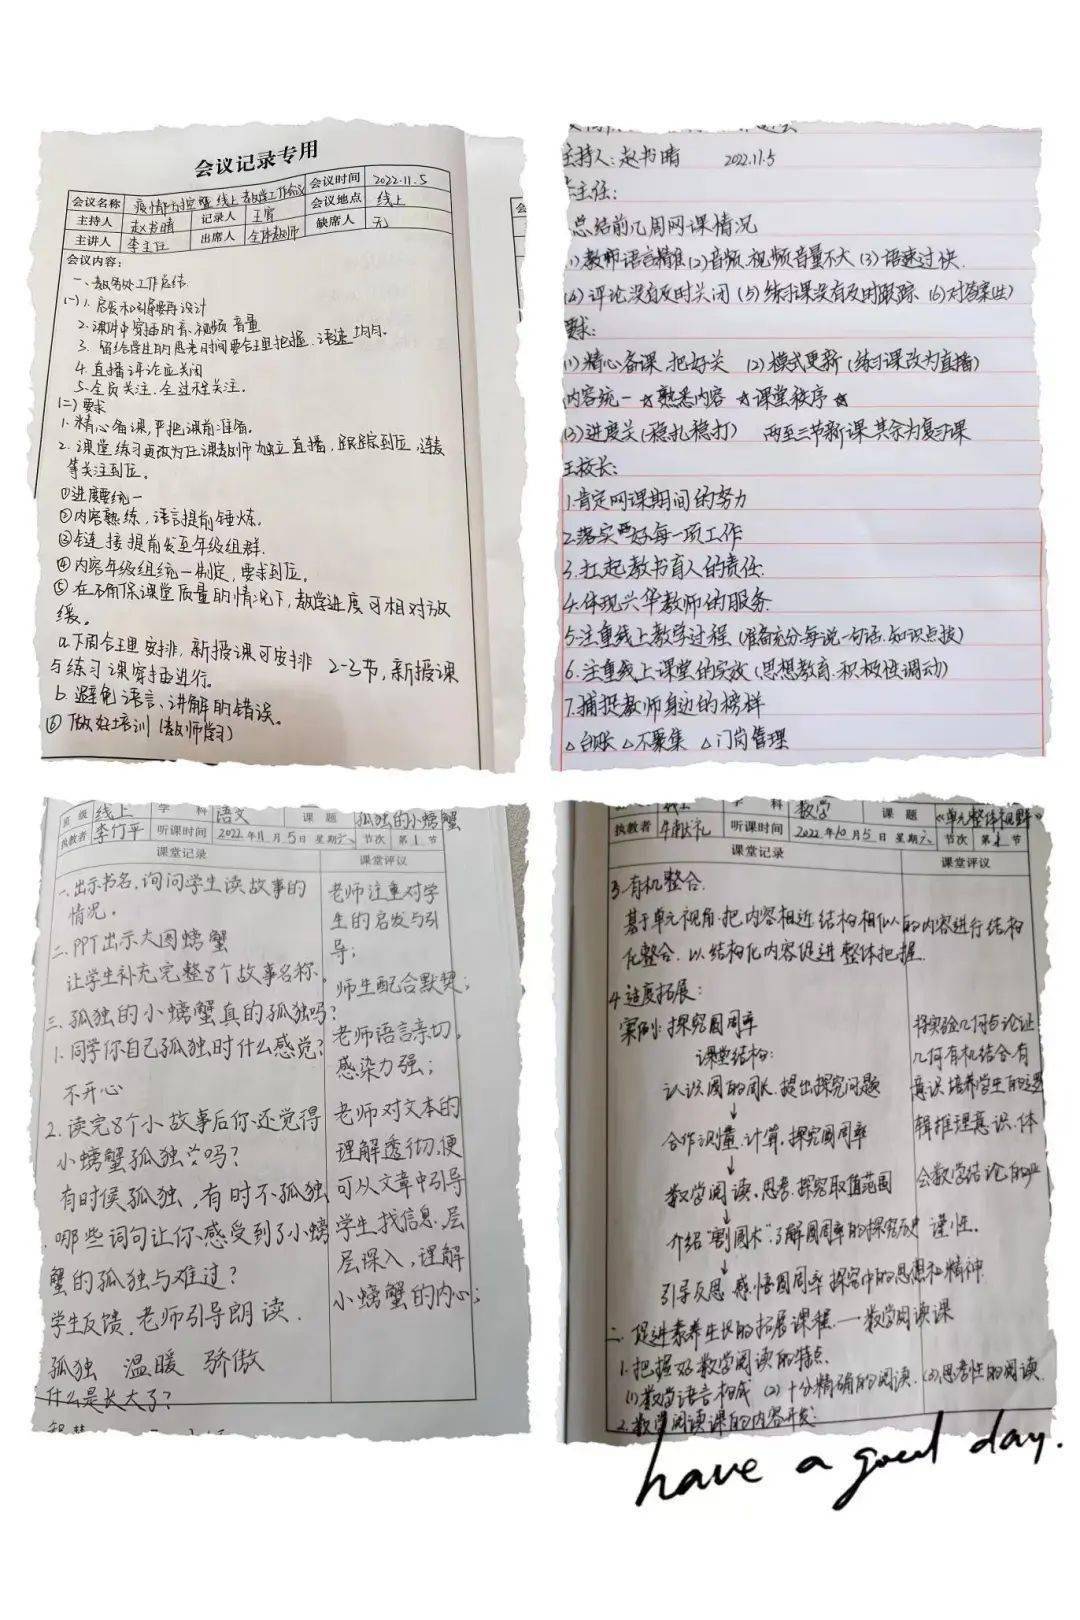 会议记录专用
会议名称 疫情防控暨线上教学工作会议 会议时间 2022.11.5
主持人 赵书晴 记录人 王霄 会议地点 线上
主讲人 李主任 出席人 全体教师 缺席人 无
会议内容:
一、教务处工作总结
(一) 1. 启发和引导要再设计
2. 课件中穿插的音、视频音量
3. 留给学生的思考时间要合理把握、语速均匀.
4. 直播评论应关闭
5. 全员关注、全过程关注.
(二)要求
1. 精心备课,严把课前准备.
2. 课堂练习更改为任课教师独立直播,跟踪到位,连麦
等关注到位。
①进度要统一
②内容熟练,语言提前锤炼.
③链接提前发至年级组群.
④内容年级组统一制定,要求到位。
⑤在不确保课堂质量的情况下,教学进度可相对放
缓。
a.下周合理安排,新授课可安排 2-3节,新授课
与练习课穿插进行.
b. 避免语言、讲解的错误。
⑥做好培训(教师学习)
主持人:赵书晴 2022.11.5
李主任:
总结前几周网课情况
(1)教师语言精准(2)音频.视频音量不大(3)语速过快.
(4)评论没有及时关闭(5)练习课没有及时跟踪.(6)对答案(生)
要求:
(1)精心备课.把好关 (2)模式更新(练习课改为直播)
内容统一 ☆熟悉内容 ☆课堂秩序☆
(3)进度关(稳扎稳打) 两至三节新课其余为复习课
王校长:
1.肯定网课期间的努力
2.落实好每一项工作
3.扛起教书育人的责任.
4.体现兴华教师的服务.
5.注重线上教学过程(准备充分每说一句话.知识点拨)
6.注重线上课堂的实效(思想教育.积极性调动)
7.捕捉教师身边的榜样
△台账 △不聚集 △门岗管理
班级 线上 学科 语文 课题 孤独的小螃蟹
执教者 李竹平 听课时间 2022年11月5日 星期六 节次 第1节
课堂记录 课堂评议
一.出示书名,询问学生读故事的
情况。
二.PPT出示大图螃蟹
让学生补充完整8个故事名称.
三.孤独的小螃蟹真的孤独吗?
1.同学你自己孤独时什么感觉?
不开心
2.读完8个小故事后你还觉得
小螃蟹孤独吗?
有时候孤独,有时不孤独
哪些词句让你感受到了小螃
蟹的孤独与难过?
学生反馈.老师引导朗读.
孤独 温暖 骄傲
什么是长大了?
老师注重对学
生的启发与引
导;
师生配合默契;
老师语言亲切,
感染力强;
老师对文本的
理解透彻,便
可从文章中引导
学生找信息.层
层深入,理解
小螃蟹的内心;
学科 数学 课题 《单元整体视野》
执教者 牛献礼 听课时间 2022年10月5日 星期六 节次 第1节
课堂记录 课堂评议
3.有机整合.
基于单元视角.把内容相近 结构相似的内容进行结构
化整合.以结构化内容促进整体把握.
4.适度拓展:
案例:探究圆周率
课堂结构:
认识圆的周长.提出探究问题
↓
合作测量.计算.探究圆周率
↓
数学阅读.思考.探究取值范围
↓
介绍“割圆术”.了解圆周率的探究历史
↓
引导反思.感悟圆周率探究中的思想和精神.
将实验几何与论证
几何有机结合.有
意识培养学生的逻
辑推理意识.体
会数学结论的严
谨性。
二.促进素养生长的拓展课程.一数学阅读课
1.把握好数学阅读的特点.
(1)数学语言构成 (2)十分精确的阅读.(3)思考性的阅读.
2.数学阅读课的内容开发:
have a good day.